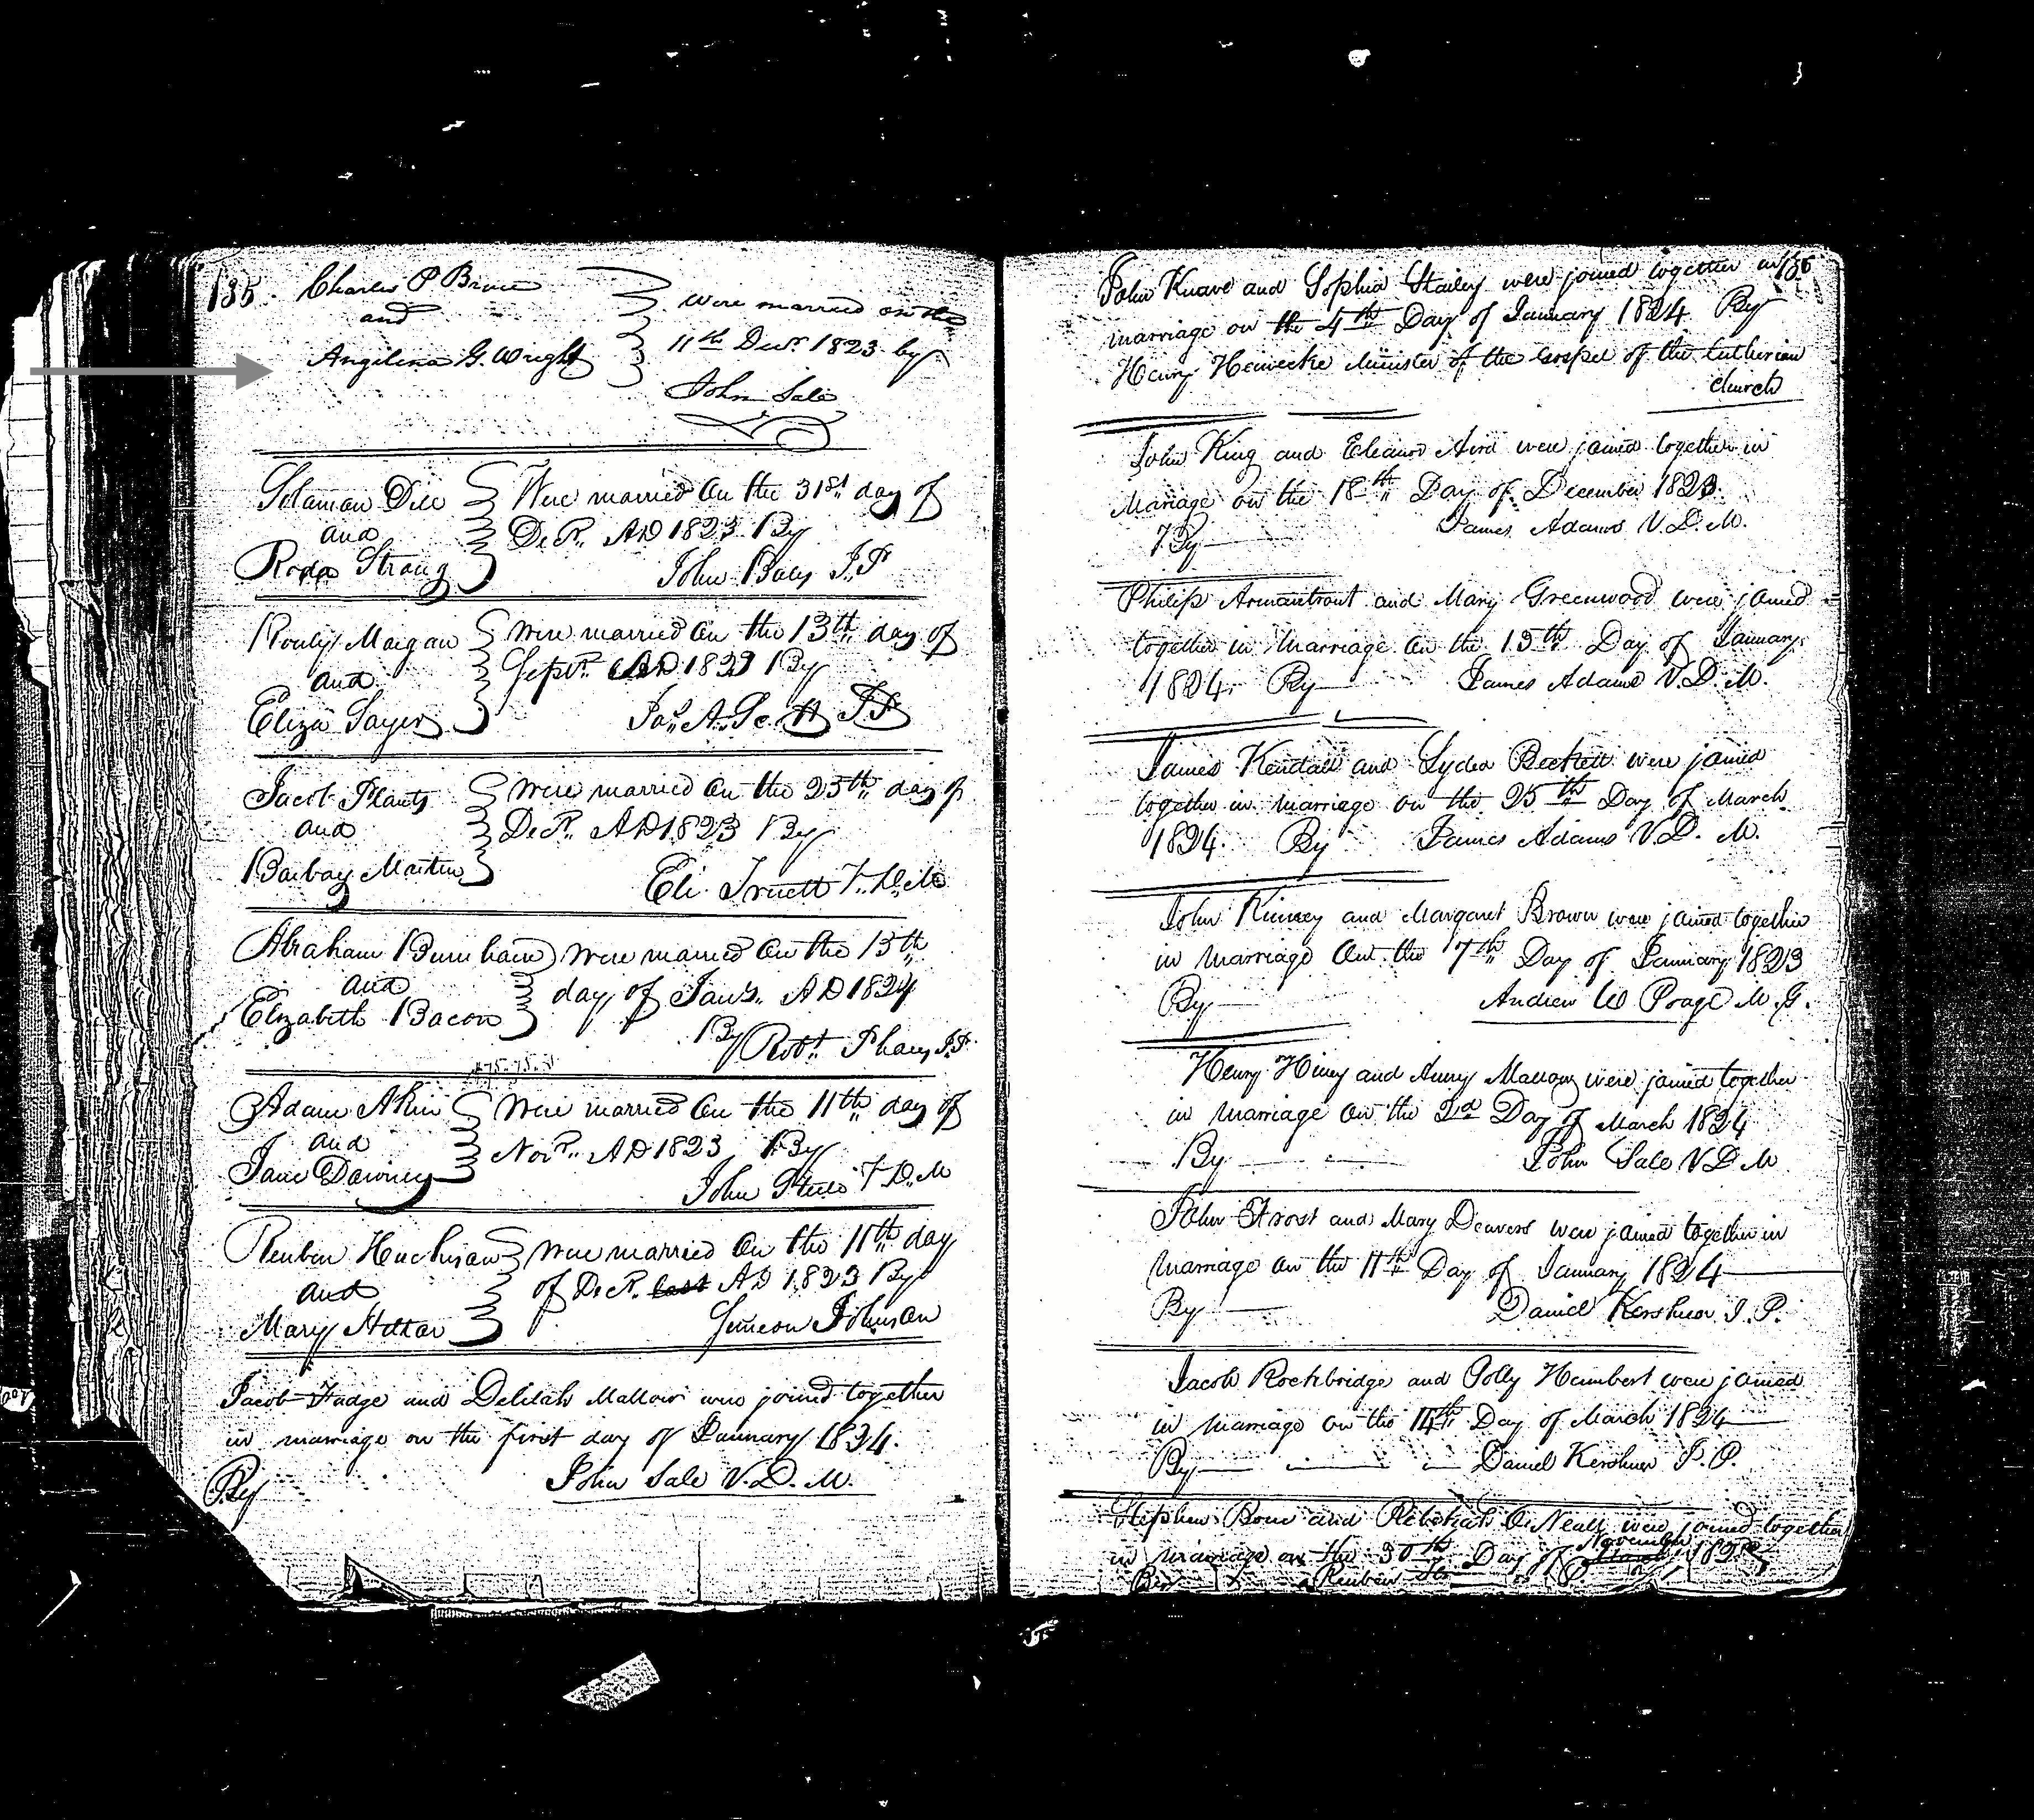 135.
Charles P Bruce
and
Angelina G. Wright
were married on the
11th Decr. 1823 by
John Sale
Solaman Dill
and
Roda Strong
Were married On the 31st day of
Decr. AD 1823 By
John Bales J.P
Morgan
and
Eliza Sayers
were married On the 13th day of
Septr. AD 1823 By
Jas. A. J.P
Jacob Plants
and
Barbay Martin
were married On the 25th day of
Decr. AD 1823 By
Eli Truett V.D.M
Abraham Burnham
and
Elizabeth Bacon
were married On the 15th
day of Jany. AD 1824
By Robt. J.P
Adam Akin
and
Jane Downey
Were married On the 11th day of
Novr. AD 1823 By
John Steele V.D.M
Reuben
and
Mary
were married On the 11th day
of Decr. AD 1823 By
Simeon Johnson
Jacob Fudge and Delilah Mallow were joined together
in marriage on the first day of January 1824.
By John Sale V.D.M.
136
John Knave and Sophia Stailey were joined together in
marriage on the 4th Day of January 1824 By
Henry Heinecke Minister of the Gospel of the Lutherian
church
John King and Eleanor were joined together in
Mariage on the 18th Day of December 1823.
By James Adams V.D.M.
Philip Armantrout and Mary Greenwood were joined
together in Marriage on the 15th Day of January
1824. By James Adams V.D.M.
James Kendall and Lydia Beckett were joined
together in marriage on the 25th Day of March
1824. By James Adams V.D.M.
John Kinney and Margaret Brown were joined together
in marriage On the 7th Day of January 1823
By Andrew W Poage M.G.
Henry Hiney and Anny Mallow were joined together
in marriage on the 2nd Day of March 1824
By John Sale V.D.M
John Frost and Mary Deavers were joined together in
Marriage on the 11th Day of January 1824
By Daniel Kershner J.P.
Jacob Rockbridge and Polly Humbert were joined
in marriage on the 14th Day of March 1824
By Daniel Kershner J.P.
Stephen Bone and Rebekah O'Neall were joined together
in marriage on the 30th Day of November
By Reuben